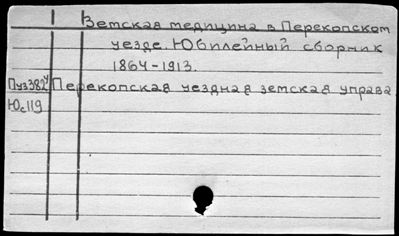 Земская медицина в Перекопском
уезде. Юбилейный сборник
1864-1913.
Перекопская уездная земская управа
Юс119